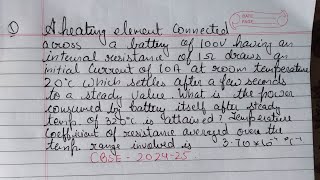 ① A heating element connected
across a battery of 100V having an
internal resistance of 1Ω draws an
initial current of 10A at room temperature
20°C which settles after a few seconds
to a steady value. What is the power
consumed by battery itself after steady
temp. of 320°C is attained? Temperature
coefficient of resistance averaged over the
temp. range involved is 3.70×10⁻⁴ °C⁻¹
CBSE - 2024-25
DATE
PAGE